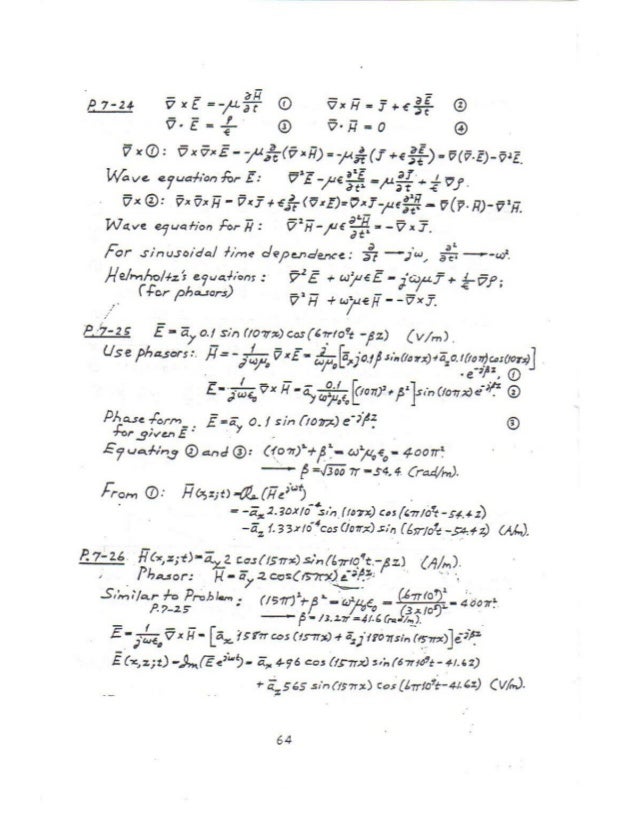 P.7-24 ∇̄ × Ē = -μ ∂H̄/∂t ① ∇̄ × H̄ = J̄ + ϵ ∂Ē/∂t ②
∇̄ · Ē = ρ/ϵ ③ ∇̄ · H̄ = 0 ④
∇̄ × ①: ∇̄×∇̄×Ē = -μ ∂/∂t (∇̄×H̄) = -μ ∂/∂t (J̄ + ϵ ∂Ē/∂t) = ∇̄(∇̄·Ē) - ∇̄²Ē.
Wave equation for Ē: ∇̄²Ē - με ∂²Ē/∂t² = μ ∂J̄/∂t + 1/ϵ ∇̄ρ.
∇̄ × ②: ∇̄×∇̄×H̄ = ∇̄×J̄ + ϵ ∂/∂t (∇̄×Ē) = ∇̄×J̄ - με ∂²H̄/∂t² = ∇̄(∇̄·H̄) - ∇̄²H̄.
Wave equation for H̄: ∇̄²H̄ - με ∂²H̄/∂t² = -∇̄×J̄.
For sinusoidal time dependence: ∂/∂t → jω, ∂²/∂t² → -ω².
Helmholtz's equations: ∇̄²Ē + ω²μϵĒ = jωμJ̄ + 1/ϵ ∇̄ρ;
(for phasors) ∇̄²H̄ + ω²μϵH̄ = -∇̄×J̄.
P.7-25 Ē = ā_y 0.1 sin (10πx) cos (6π10⁹t - βz) (V/m).
Use phasors: H̄ = -1/(jωμ₀) ∇̄×Ē = j/(ωμ₀) [ā_x j0.1β sin(10πx) + ā_z 0.1(10π)cos(10πx)]
· e^(-jβz), ①
Ē = 1/(jωϵ₀) ∇̄×H̄ = ā_y 0.1/(ω²μ₀ϵ₀) [(10π)² + β²] sin(10πx) e^(-jβz) ②
Phase form for given Ē: Ē = ā_y 0.1 sin (10πx) e^(-jβz) ③
Equating ② and ③: (10π)² + β² = ω²μ₀ϵ₀ = 400π²
→ β = √300 π = 54.4 (rad/m).
From ①: H̄(x,z;t) = Re (H̄e^(jωt))
= -ā_x 2.30×10⁻⁴ sin (10πx) cos (6π10⁹t - 54.4z)
-ā_z 1.33×10⁻⁴ cos (10πx) sin (6π10⁹t - 54.4z) (A/m).
P.7-26 H̄(x,z;t) = ā_y 2 cos(15πx) sin(6π10⁹t - βz) (A/m).
Phasor: H̄ = ā_y 2 cos(15πx) e^(-jβz).
Similar to Problem P.7-25: (15π)² + β² = ω²μ₀ϵ₀ = (6π10⁹)²/(3×10⁸)² = 400π²
→ β = 13.2π = 41.6 (rad/m).
Ē = 1/(jωϵ₀) ∇̄×H̄ = [ā_x 158π cos (15πx) + ā_z j180π sin (15πx)] e^(-jβz)
Ē(x,z;t) = Im (Ē e^(jωt)) = ā_x 496 cos (15πx) sin (6π10⁹t - 41.6z)
+ ā_z 565 sin (15πx) cos (6π10⁹t - 41.6z) (V/m).
64